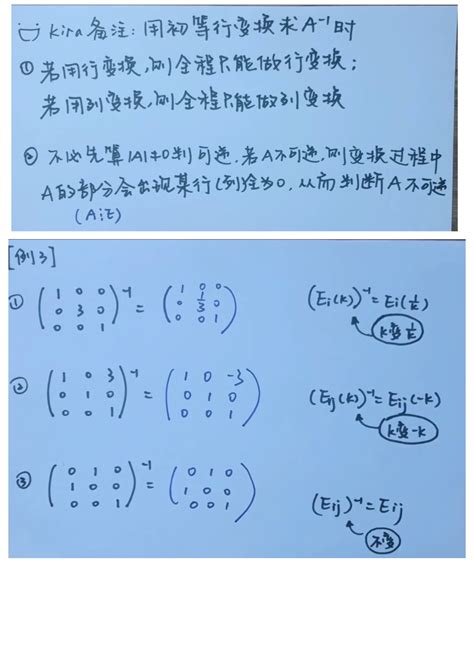 kira备注:用初等行变换求A⁻¹时
① 若用行变换,则全程只能做行变换;
若用列变换,则全程只能做列变换
② 不必先算|A|≠0判可逆,若A不可逆,则变换过程中
A的部分会出现某行(列)全为0,从而判断A不可逆
(A⋮E)
[例3]
① (1 0 0
0 3 0
0 0 1)⁻¹ = (1 0 0
0 1/3 0
0 0 1)
(Ei(k))⁻¹=Ei(1/k)
k变1/k
② (1 0 3
0 1 0
0 0 1)⁻¹ = (1 0 -3
0 1 0
0 0 1)
(Eij(k))⁻¹=Eij(-k)
k变-k
③ (0 1 0
1 0 0
0 0 1)⁻¹ = (0 1 0
1 0 0
0 0 1)
(Eij)⁻¹=Eij
不变